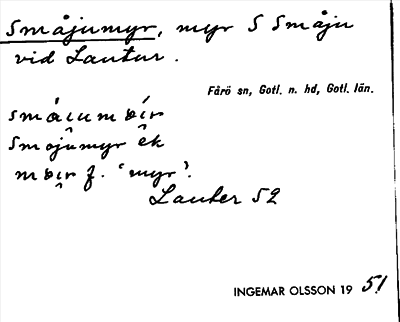 Småjumyr, myr S Småju
vid Lautur.
Fårö sn, Gotl. n. hd, Gotl. län.
Smojumyr êk
f. 'myr'.
Lauter 52
INGEMAR OLSSON 19 51